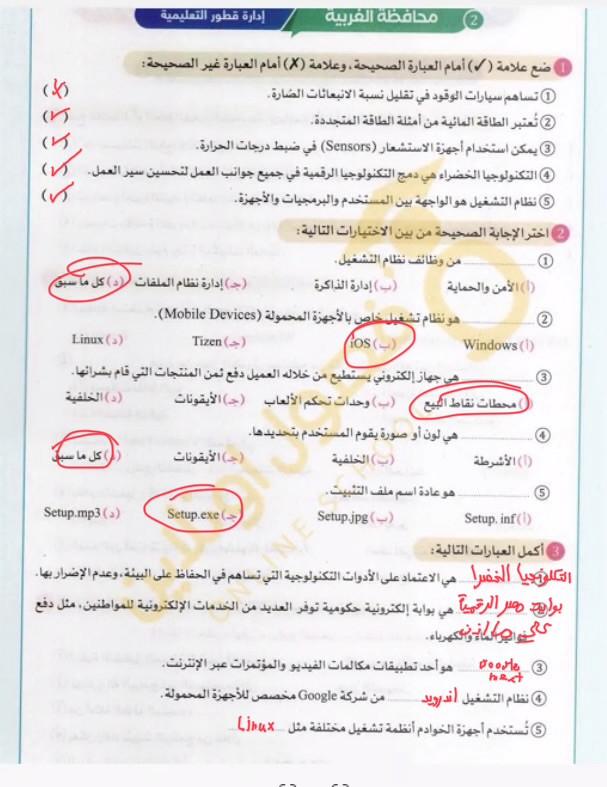 2 محافظة الغربية إدارة قطور التعليمية
1 ضع علامة (✓) أمام العبارة الصحيحة، وعلامة (✗) أمام العبارة غير الصحيحة:
① تساهم سيارات الوقود في تقليل نسبة الانبعاثات الضارة. (✗)
② تُعتبر الطاقة المائية من أمثلة الطاقة المتجددة. (✓)
③ يمكن استخدام أجهزة الاستشعار (Sensors) في ضبط درجات الحرارة. (✓)
④ التكنولوجيا الخضراء هي دمج التكنولوجيا الرقمية في جميع جوانب العمل لتحسين سير العمل. (✓)
⑤ نظام التشغيل هو الواجهة بين المستخدم والبرمجيات والأجهزة. (✓)
2 اختر الإجابة الصحيحة من بين الاختيارات التالية:
① ............ من وظائف نظام التشغيل.
(أ) الأمن والحماية (ب) إدارة الذاكرة (جـ) إدارة نظام الملفات (د) كل ما سبق
② ............ هو نظام تشغيل خاص بالأجهزة المحمولة (Mobile Devices).
(أ) Windows (ب) iOS (جـ) Tizen (د) Linux
③ ............ هي جهاز إلكتروني يستطيع من خلاله العميل دفع ثمن المنتجات التي قام بشرائها.
(أ) محطات نقاط البيع (ب) وحدات تحكم الألعاب (جـ) الأيقونات (د) الخلفية
④ ............ هي لون أو صورة يقوم المستخدم بتحديدها.
(أ) الأشرطة (ب) الخلفية (جـ) الأيقونات (د) كل ما سبق
⑤ ............ هو عادة اسم ملف التثبيت.
(أ) Setup. inf (ب) Setup.jpg (جـ) Setup.exe (د) Setup.mp3
3 أكمل العبارات التالية:
① التكنولوجيا الخضرا هي الاعتماد على الأدوات التكنولوجية التي تساهم في الحفاظ على البيئة، وعدم الإضرار بها.
② بوابة مصر الرقمية هي بوابة إلكترونية حكومية توفر العديد من الخدمات الإلكترونية للمواطنين، مثل دفع
فواتير الماء والكهرباء.
③ هو أحد تطبيقات مكالمات الفيديو والمؤتمرات عبر الإنترنت.
④ نظام التشغيل اندرويد من شركة Google مخصص للأجهزة المحمولة.
⑤ تُستخدم أجهزة الخوادم أنظمة تشغيل مختلفة مثل Linux
ONLINE SCHOOL